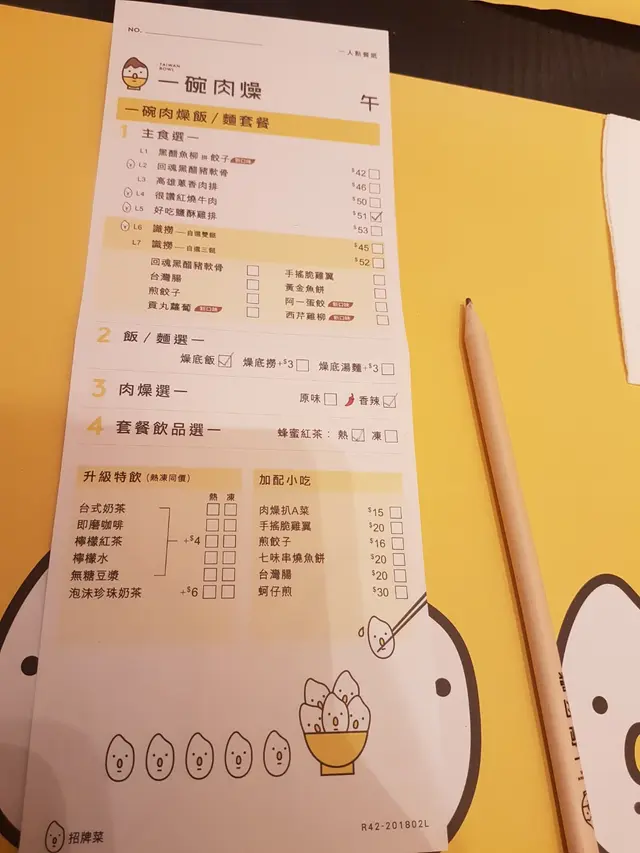 NO.
一人點餐紙
TAIWAN
BOWL
一碗肉燥
午
一碗肉燥飯/麵套餐
1 主食選一
L1 黑醋魚柳拼餃子 新口味 $42
L2 回魂黑醋豬軟骨 $46
L3 高雄蔥香肉排 $50
L4 很讚紅燒牛肉 $51
L5 好吃鹽酥雞排 $53
L6 識撈—自選雙餸 $45
L7 識撈—自選三餸 $52
回魂黑醋豬軟骨 手搖脆雞翼
台灣腸 黃金魚餅
煎餃子 阿一蛋餃 新口味
貢丸蘿蔔 新口味 西芹雞柳 新口味
2 飯/麵選一
燥底飯 燥底撈+$3 燥底湯麵+$3
3 肉燥選一
原味 香辣
4 套餐飲品選一
蜂蜜紅茶: 熱 凍
升級特飲(熱凍同價)
熱 凍
台式奶茶
即磨咖啡
檸檬紅茶 +$4
檸檬水
無糖豆漿
泡沫珍珠奶茶 +$6
加配小吃
肉燥扒A菜 $15
手搖脆雞翼 $20
煎餃子 $16
七味串燒魚餅 $20
台灣腸 $20
蚵仔煎 $30
招牌菜
R42-201802L